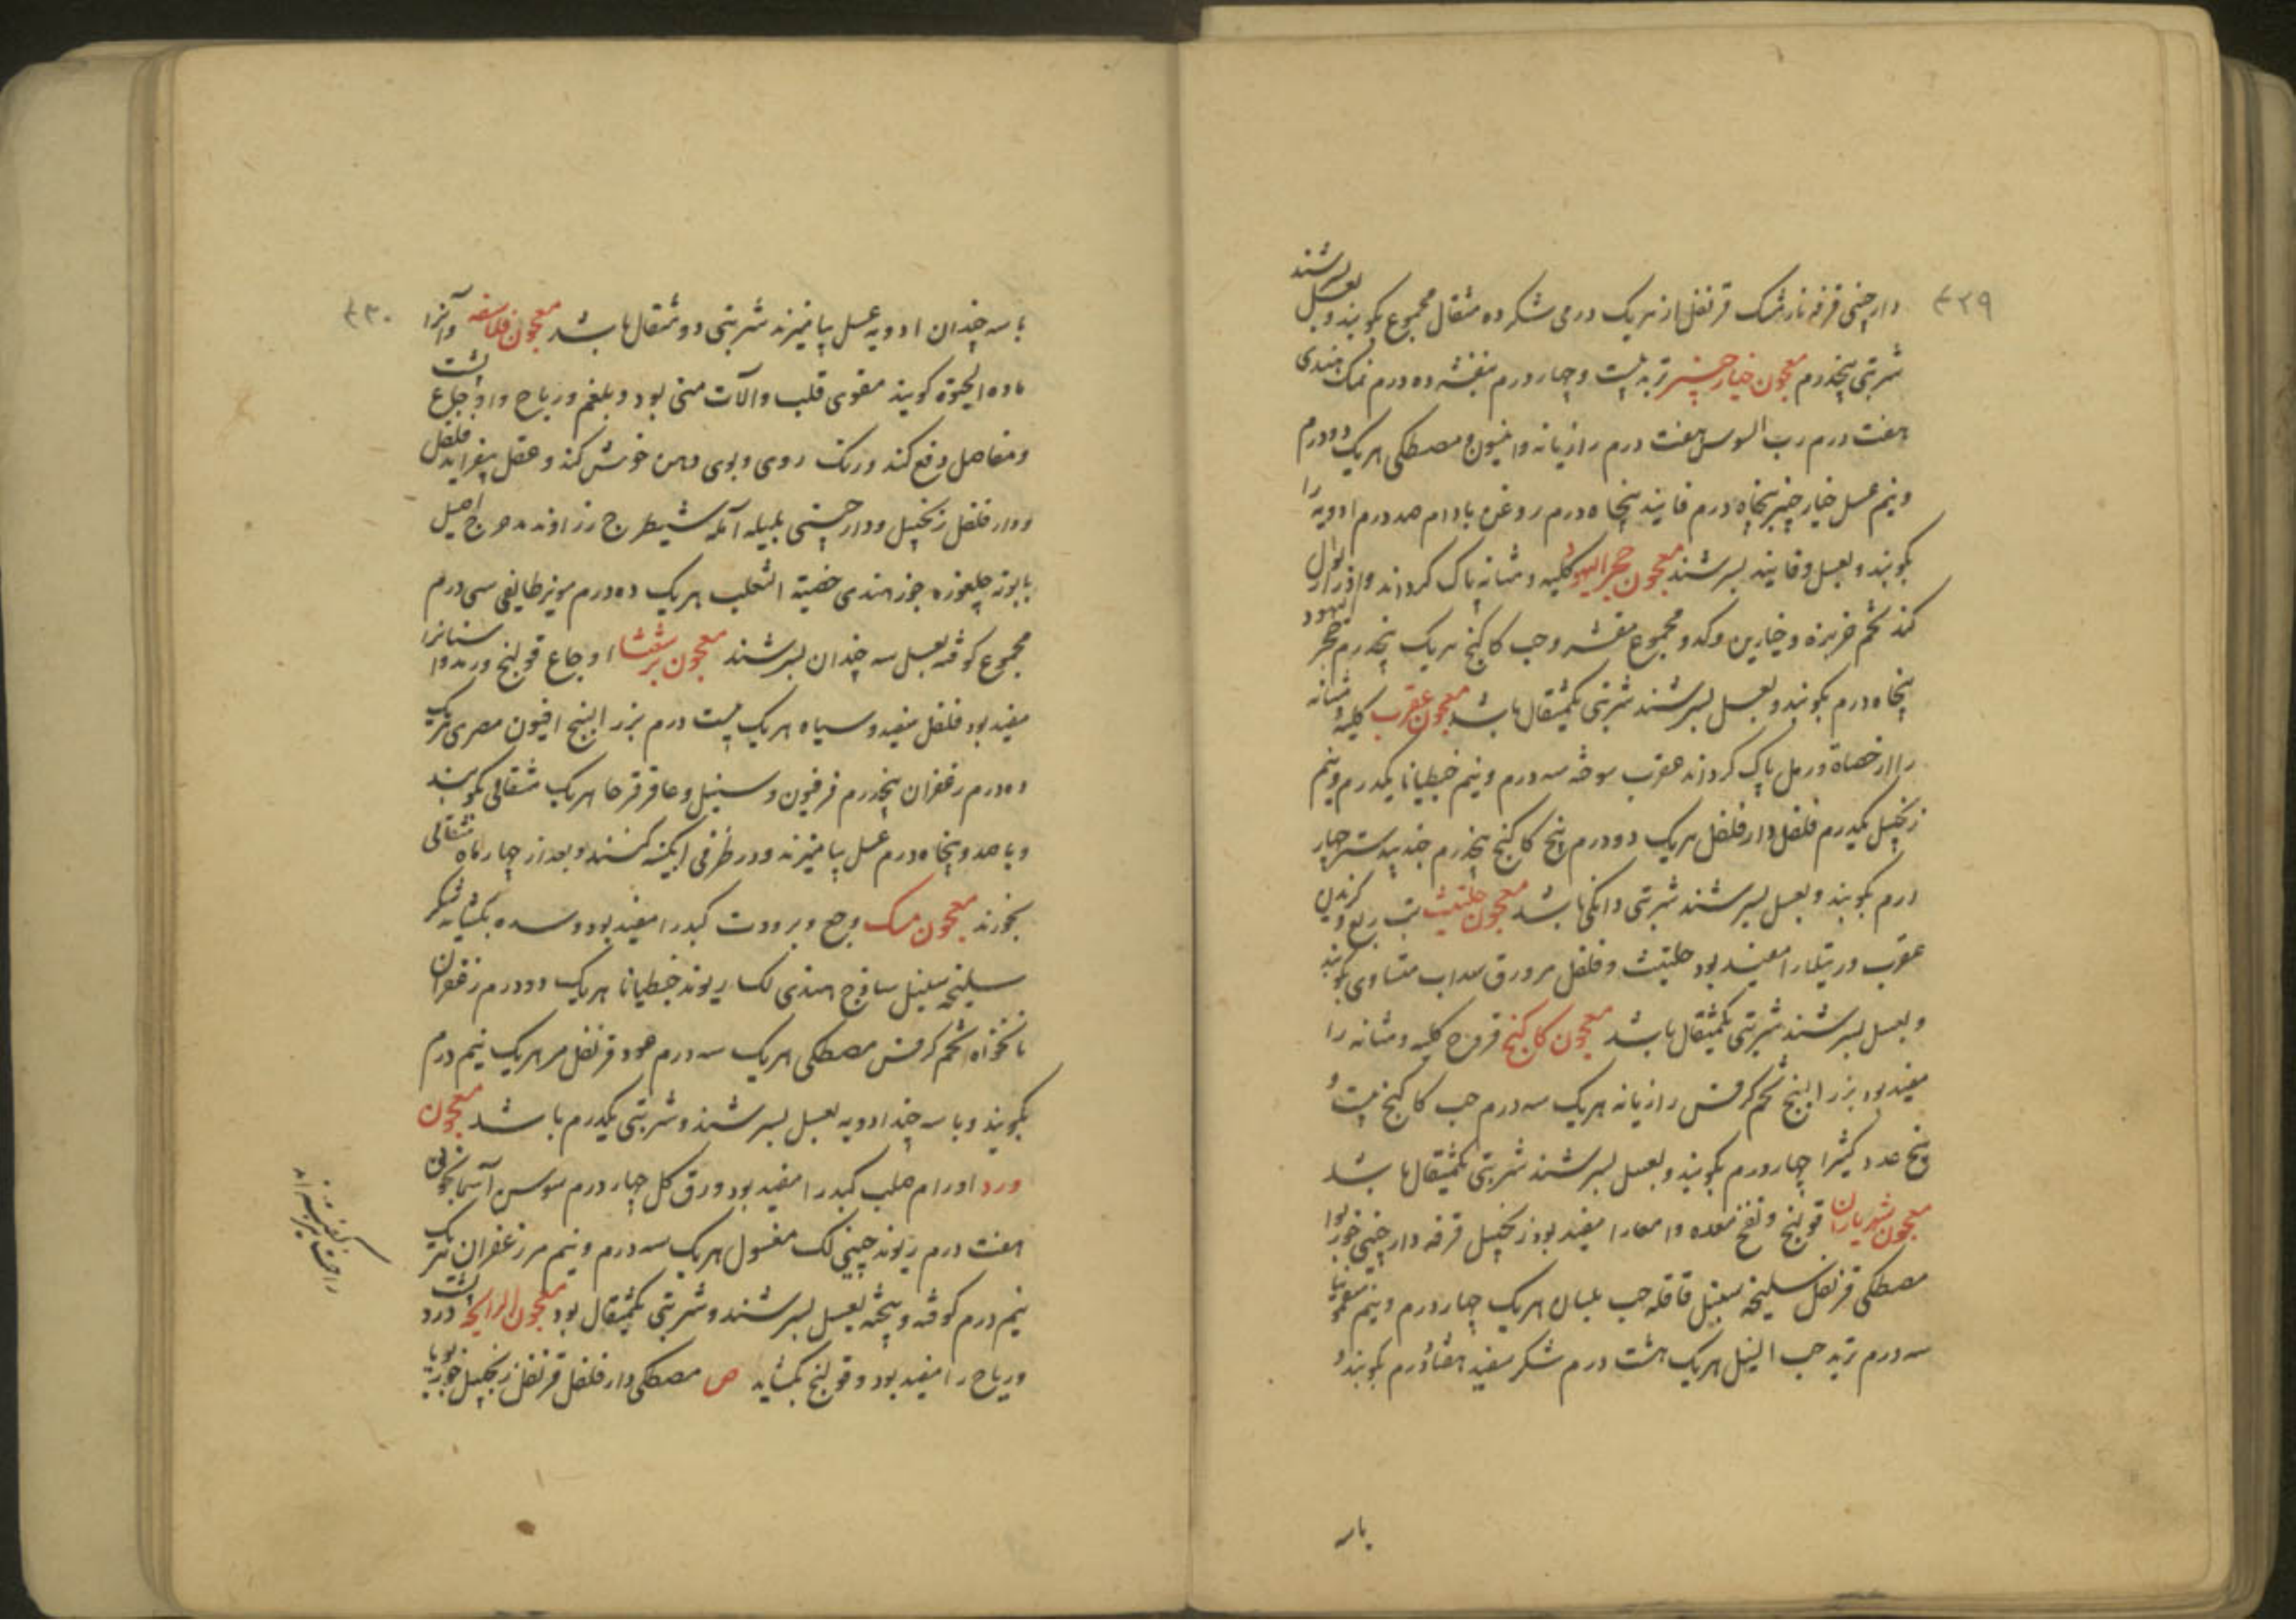 ۴۲۹
دارچینی قرفه نارمشک قرنفل از هریک درمی شکر ده مثقال مجموع بکوبند و بعسل بسرشند
شربتی پنجدرم معجون خیارچنبر تربد بیست و چهار درم بنفشه ده درم نمک هندی
هفت درم رب السوس هفت درم رازیانه و انیسون و مصطکی هریک دو درم
و نیم عسل خیارچنبر پنجاه درم فانید پنجاه درم روغن بادام صد درم ادویه را
بکوبند و بعسل و فانید بسرشند معجون حجر الیهود کلیه و مثانه پاک کرداند و ادرار بول
کند تخم خربزه و خیارین و کدو مجموع مقشر و حب کاکنج هریک پنجدرم حجر الیهود
پنجاه درم بکوبند و بعسل بسرشند شربتی یکمثقال باشد معجون عقرب کلیه و مثانه
را از حصاة و رمل پاک کرداند عقرب سوخته سه درم و نیم جنطیانا یکدرم و نیم
زنجبیل یکدرم فلفل دارفلفل هریک دو درم پنج کاکنج پنجدرم جندبیدستر چهار
درم بکوبند و بعسل بسرشند شربتی دانکی باشد معجون حلتیت تب ربع و گزیدن
عقرب و رتیلا را مفید بود حلتیت و فلفل مر و ورق سداب متساوی بکوبند
و بعسل بسرشند شربتی یکمثقال باشد معجون کاکنج قروح کلیه و مثانه را
مفید بود بزر البنج تخم کرفس رازیانه هریک سه درم حب کاکنج بیست و
پنج عدد کثیرا چهار درم بکوبند و بعسل بسرشند شربتی یکمثقال باشد
معجون شهریاران قولنج و نفخ معده و امعا را مفید بود زنجبیل قرفه دارچینی جوزبوا
مصطکی قرنفل سلیخه سنبل قاقله حب بلسان هریک چهار درم و نیم سقمونیا
سه درم تربد حب النیل هریک هشت درم شکر سفید هفتاد درم بکوبند و
با سه
۴۳۰
با سه چندان ادویه عسل بیامیزند شربتی دو مثقال باشد معجون فلاسفه و آنرا
ماده الحیوة کویند مقوی قلب و آلات منی بود و بلغم و ریاح و اوجاع پشت
و مفاصل دفع کند و رنک روی و بوی دهن خوش کند و عقل بیفزاید فلفل
و دارفلفل زنجبیل و دارچینی بلیله آمله شیطرج زراوند مدحرج اصیل
بابونه چلغوزه جوز هندی خصیة الثعلب هریک ده درم مویز طایفی سی درم
مجموع کوفته بعسل سه چندان بسرشند معجون برشعثا اوجاع قولنج و درد
مفید بود فلفل سفید و سیاه هریک بیست درم بزر البنج افیون مصری هریک
ده درم زعفران پنجدرم فرفیون و سنبل و عاقرقرحا هریک مثقالی بکوبند
و با صد و پنجاه درم عسل بیامیزند و در ظرفی ابکینه کنند و بعد از چهار ماه مثقالی
بخورند معجون مسک وجع و برودت کبد را مفید بود و سده بکشاید مشک
سلیخه سنبل ساذج هندی لک ریوند جنطیانا هریک دو درم زعفران
نانخواه تخم کرفس مصطکی هریک سه درم عود قرنفل مر هریک نیم درم
بکوبند و با سه چند ادویه بعسل بسرشند و شربتی یکدرم باشد معجون
ورد اورام صلب کبد را مفید بود ورق کل چهار درم سوسن آسمانجونی
هفت درم ریوند چینی لک مغسول هریک سه درم و نیم مر زعفران هریک
نیم درم کوفته و پیخته بعسل بسرشند و شربتی یکمثقال بود معجون الرایحه درد پشت
و ریاح را مفید بود و قولنج بکشاید ص مصطکی دارفلفل قرنفل زنجبیل جوزبویا